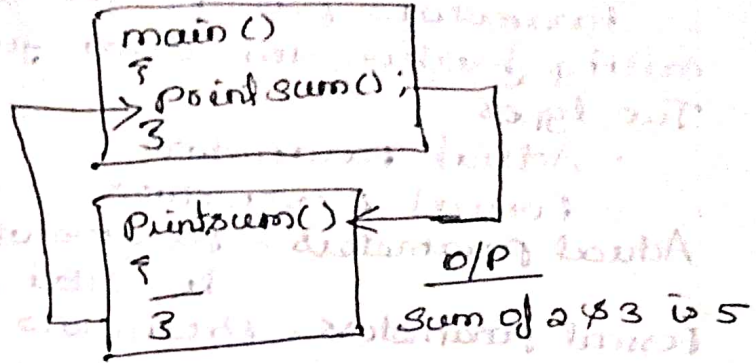 main()
{
printsum();
}
printsum()
{
}
O/P
Sum of 2 & 3 is 5